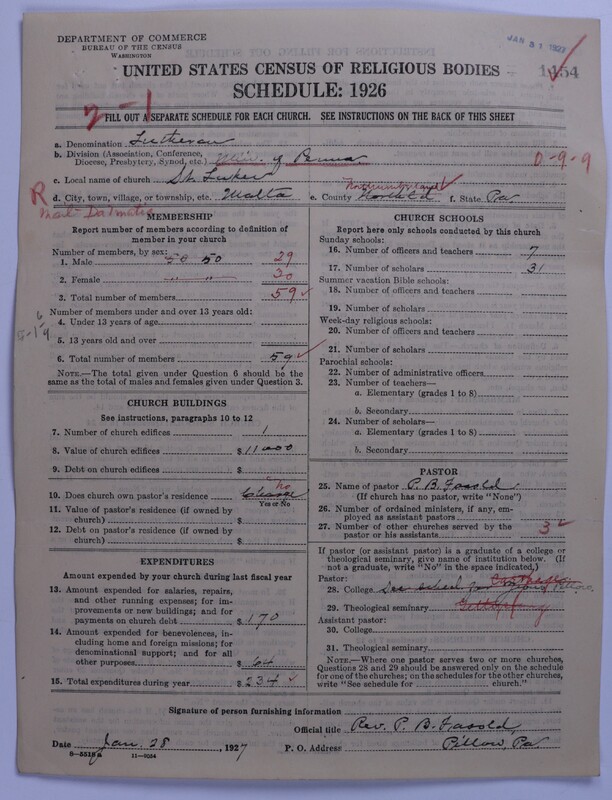 DEPARTMENT OF COMMERCE
BUREAU OF THE CENSUS
WASHINGTON
JAN 31 1927
UNITED STATES CENSUS OF RELIGIOUS BODIES
1454
SCHEDULE: 1926
2-1
FILL OUT A SEPARATE SCHEDULE FOR EACH CHURCH. SEE INSTRUCTIONS ON THE BACK OF THIS SHEET
a. Denomination Lutheran
b. Division (Association, Conference,
Diocese, Presbytery, Synod, etc.) Min. of Penna
0-9-9
c. Local name of church St. Lukes
R
d. City, town, village, or township, etc. Malta
Northumberland
e. County
f. State Pa
Mail- Dalmatia
MEMBERSHIP
Report number of members according to definition of
member in your church
Number of members, by sex:
1. Male 50 50 29
2. Female " " 30
3. Total number of members 59
Number of members under and over 13 years old:
4. Under 13 years of age
5. 13 years old and over
6. Total number of members 59
NOTE.—The total given under Question 6 should be
the same as the total of males and females given under Question 3.
CHURCH BUILDINGS
See instructions, paragraphs 10 to 12
7. Number of church edifices 1
8. Value of church edifices $ 11000
9. Debt on church edifices $
10. Does church own pastor's residence no
Yes or No
11. Value of pastor's residence (if owned by
church) $
12. Debt on pastor's residence (if owned by
church) $
EXPENDITURES
Amount expended by your church during last fiscal year
13. Amount expended for salaries, repairs,
and other running expenses; for im-
provements or new buildings; and for
payments on church debt $ 170
14. Amount expended for benevolences, in-
cluding home and foreign missions; for
denominational support; and for all
other purposes $ 64
15. Total expenditures during year $ 234
CHURCH SCHOOLS
Report here only schools conducted by this church
Sunday schools:
16. Number of officers and teachers 7
17. Number of scholars 31
Summer vacation Bible schools:
18. Number of officers and teachers
19. Number of scholars
Week-day religious schools:
20. Number of officers and teachers
21. Number of scholars
Parochial schools:
22. Number of administrative officers
23. Number of teachers—
a. Elementary (grades 1 to 8)
b. Secondary
24. Number of scholars—
a. Elementary (grades 1 to 8)
b. Secondary
PASTOR
25. Name of pastor P. B. Fasold
(If church has no pastor, write "None")
26. Number of ordained ministers, if any, em-
ployed as assistant pastors
27. Number of other churches served by the
pastor or his assistants 3
If pastor (or assistant pastor) is a graduate of a college or
theological seminary, give name of institution below. (If
not a graduate, write "No" in the space indicated.)
Pastor:
28. College See sched for
29. Theological seminary Gettysburg
Assistant pastor:
30. College
31. Theological seminary
NOTE.—Where one pastor serves two or more churches,
Questions 28 and 29 should be answered only on the schedule
for one of the churches; on the schedules for the other churches,
write "See schedule for church."
Signature of person furnishing information
Official title Rev. P. B. Fasold,
Date Jan. 28, 1927
P. O. Address Pillow, Pa
8-5518a 11-9034